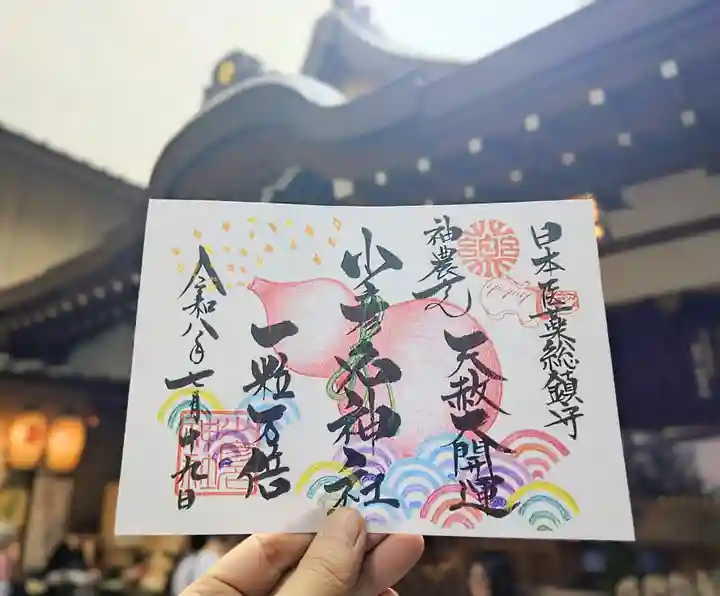 日本医薬総鎮守
薬
神農さん
天赦大開運
少彦名神社
一粒万倍
令和八年七月十九日